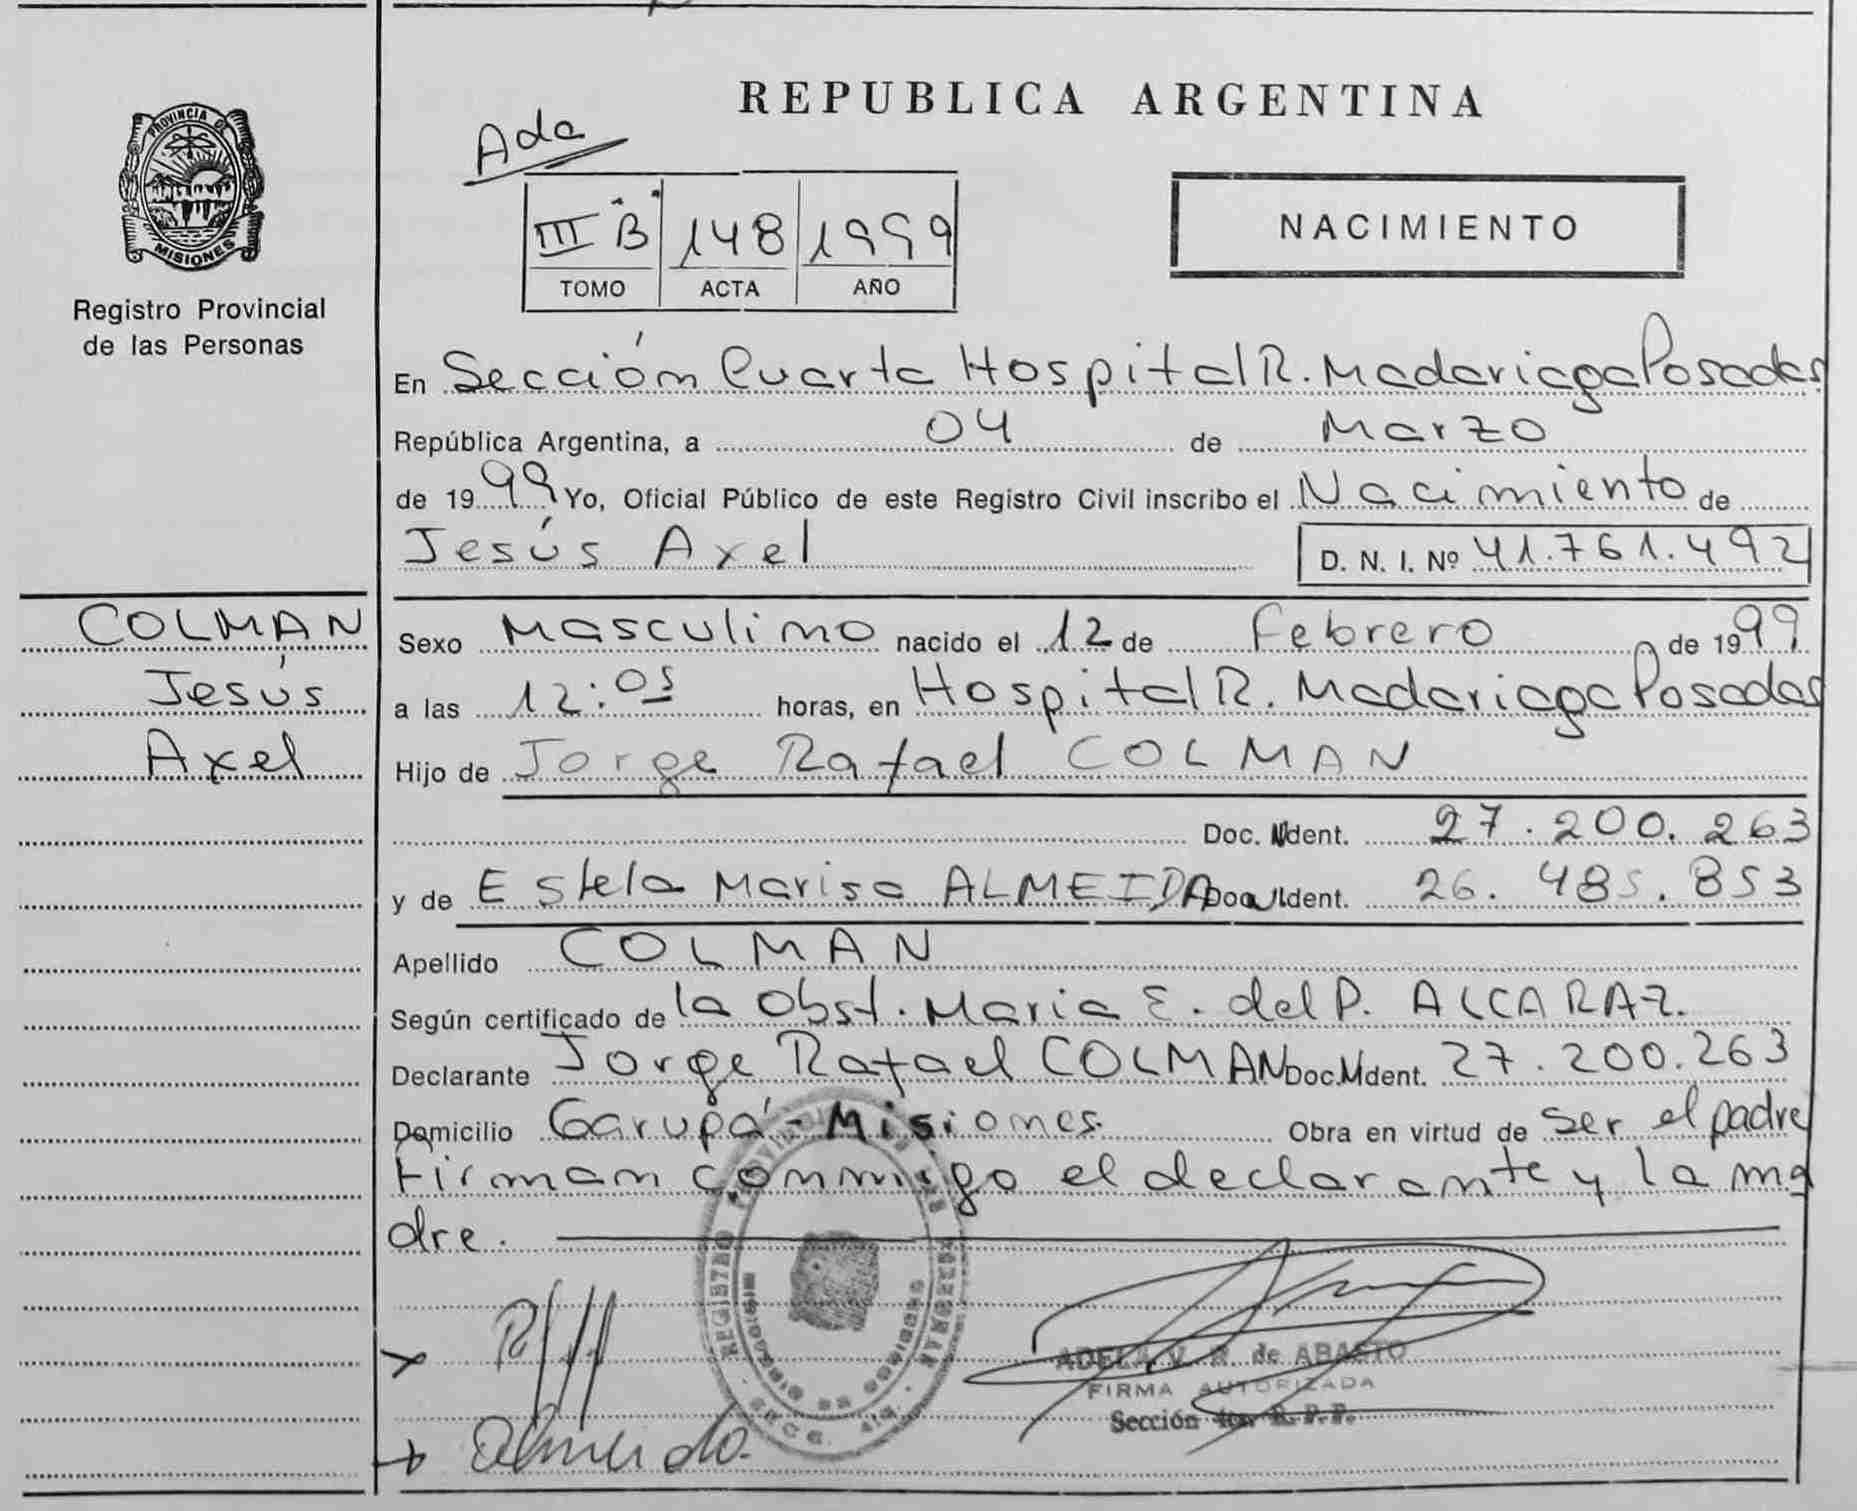 REPUBLICA ARGENTINA
Ada
PROVINCIA DE
MISIONES
Registro Provincial
de las Personas
III "B" 148 1999
TOMO ACTA AÑO
NACIMIENTO
En Sección Cuarta Hospital R. Madariaga Posadas
República Argentina, a 04 de Marzo
de 1999 Yo, Oficial Público de este Registro Civil inscribo el Nacimiento de
Jesús Axel D. N. I. Nº 41.761.492
COLMAN
Jesús
Axel
Sexo Masculino nacido el 12 de Febrero de 1999
a las 12:05 horas, en Hospital R. Madariaga Posadas
Hijo de Jorge Rafael COLMAN
Doc. Ident. 27.200.263
y de Estela Marisa ALMEIDA Doc. Ident. 26.485.853
Apellido COLMAN
Según certificado de la Obst. Maria E. del P. ALCARAZ.
Declarante Jorge Rafael COLMAN Doc. Ident. 27.200.263
Domicilio Garupá - Misiones. Obra en virtud de ser el padre
Firman conmigo el declarante y la ma
dre.
REGISTRO PROVINCIAL DE LAS PERSONAS
MISIONES
ADELA V. R. de ABASTO
FIRMA AUTORIZADA
Sección 4ta R. P. P.